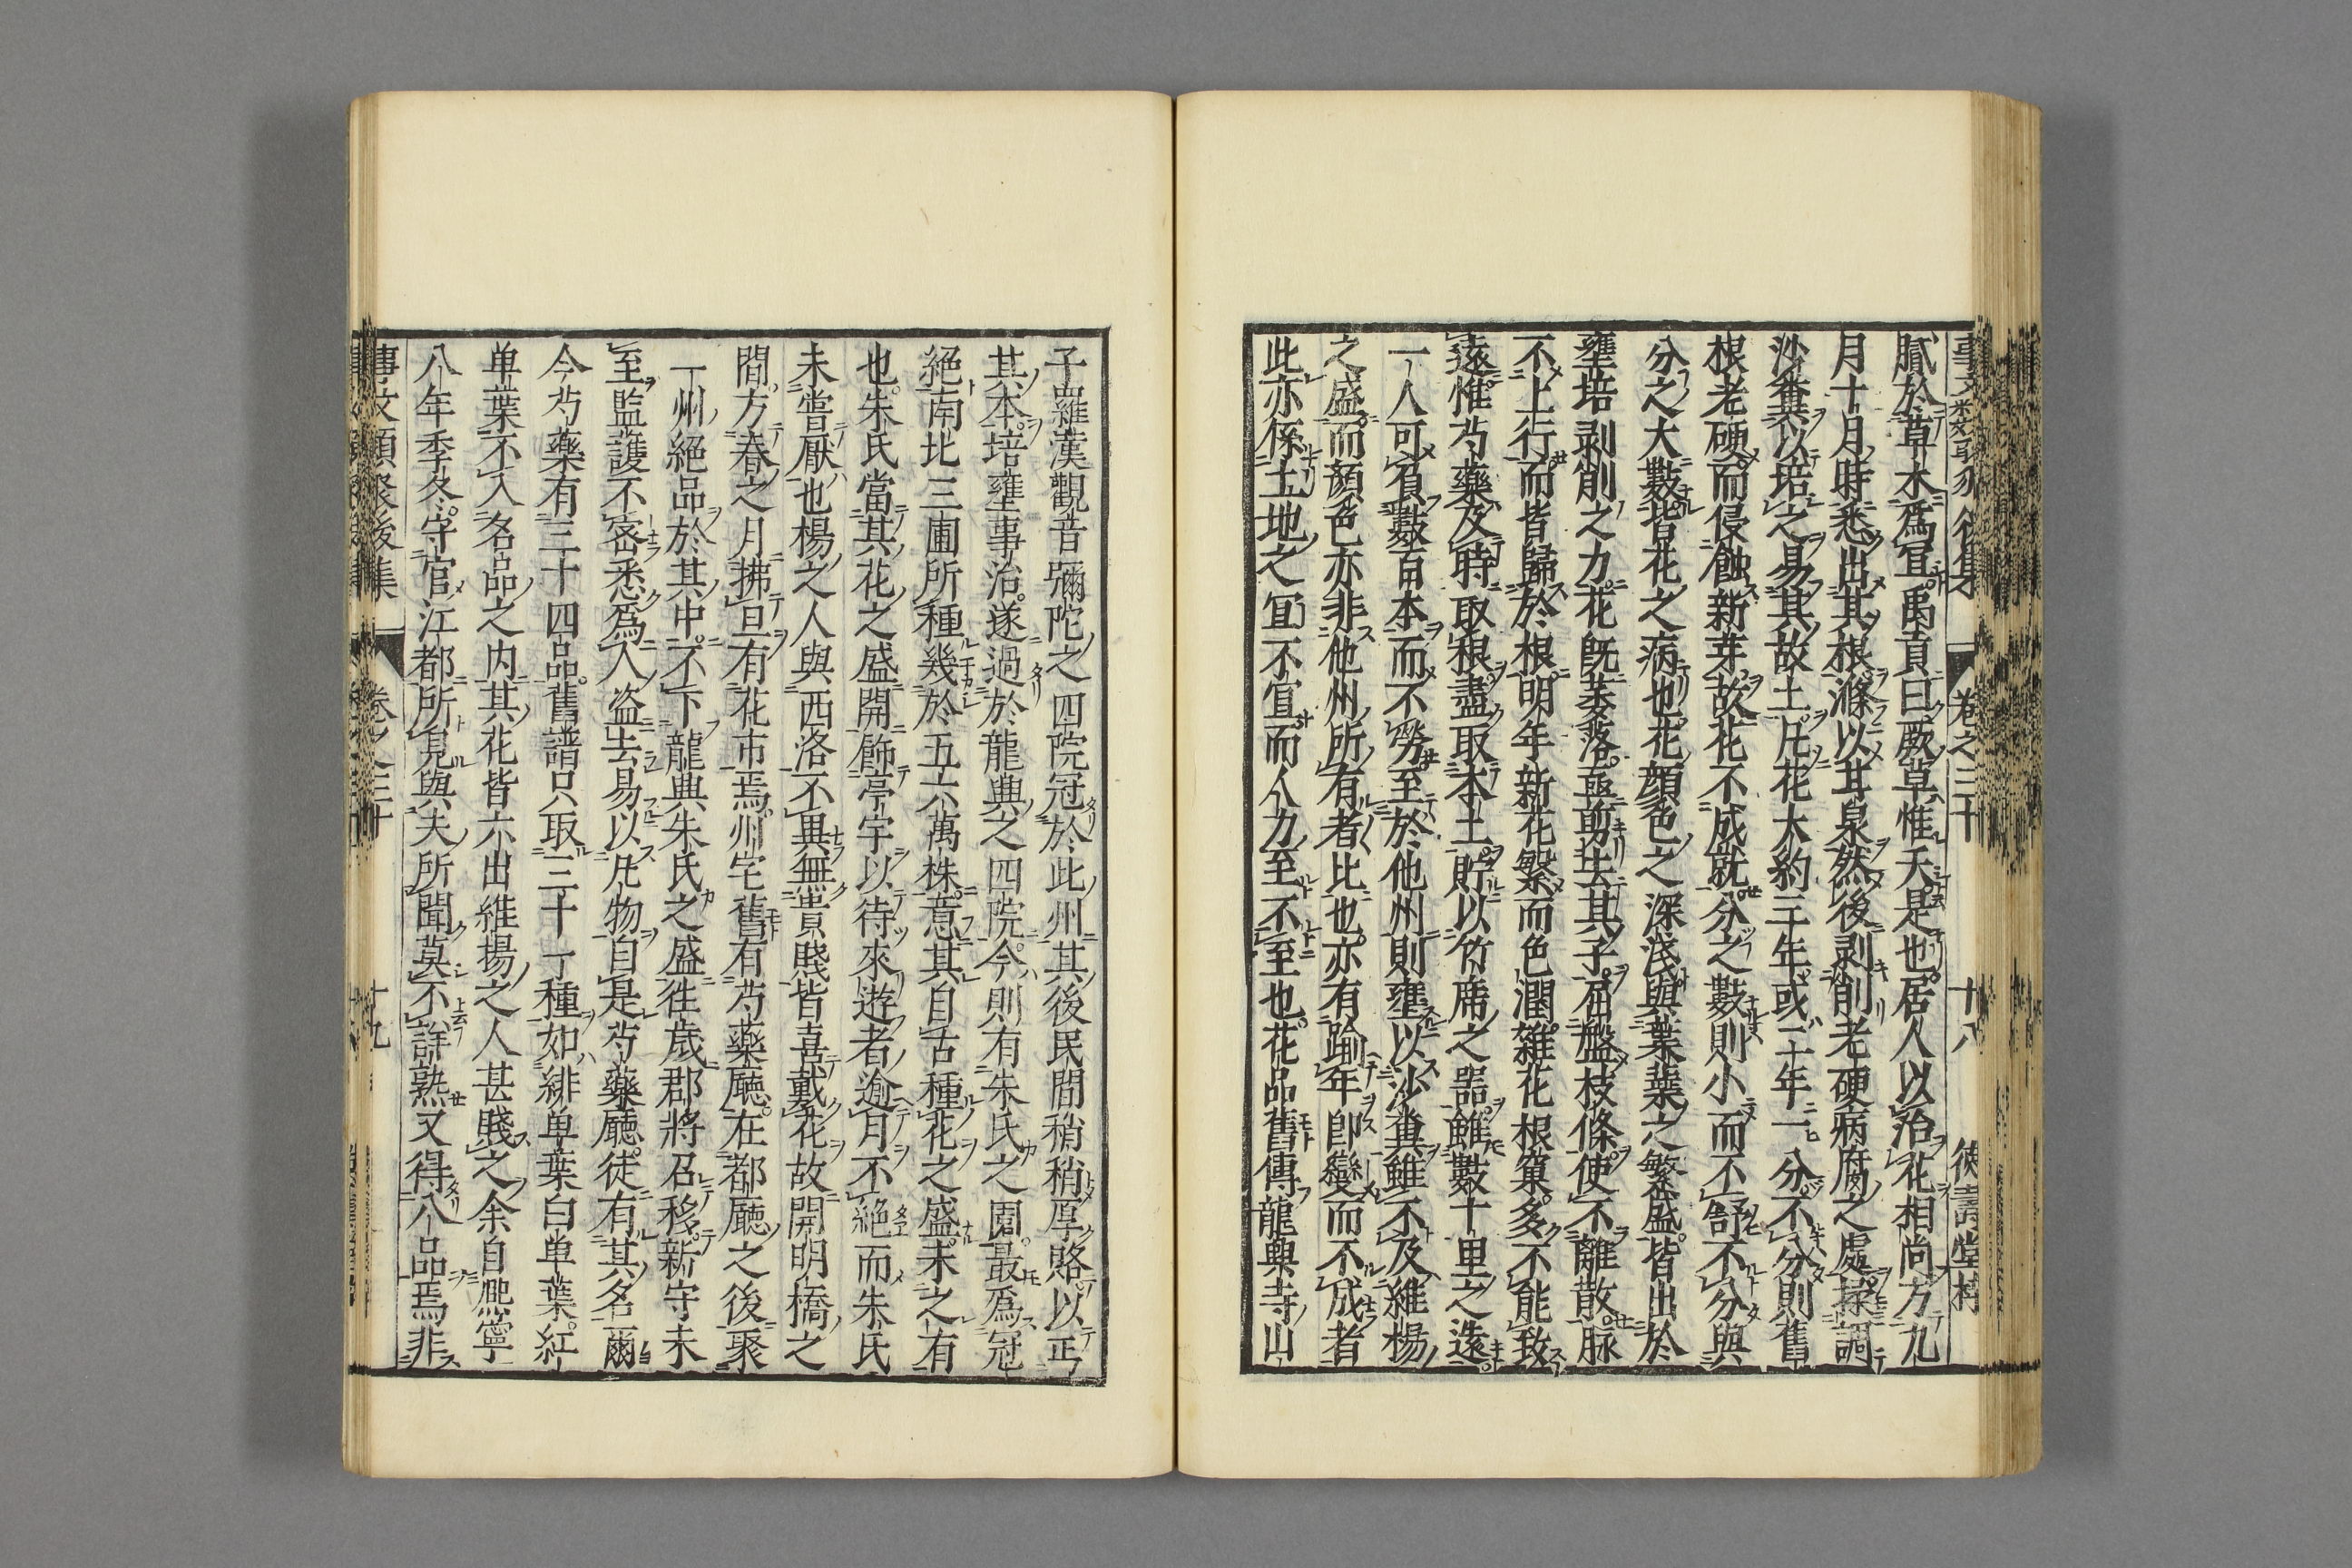 事文類聚後集 卷之三十 十八 德壽堂梓
膩於草木爲宜禹貢曰厥草惟夭是也居人以治花相尚方九
月十月時悉出其根滌以甘泉然後剥削老硬病腐之處揉調
沙糞以培之易其故土凡花大約三年或二年一分不分則舊
根老硬而侵蝕新芽故花不成就分之數則小而不舒不分與
分之大數皆花之病也花顏色之深淺與葉蘂之繁盛皆出於
壅培剥削之力花既萎落亟剪去其子屈盤枝條使不離散脉
不上行而皆歸於根明年新花繁而色潤雜花根窠多不能致
遠惟芍藥及時取根盡取本土貯以竹席之噐雖數十里之遠
一人可負數百本而不勞至於他州則壅以沙糞雖不及維楊
之盛而顏色亦非他州所有者比也亦有踰年卽變而不成者
此亦係土地之宜不宜而人力至不至也花品舊傳龍興寺山
子羅漢觀音彌陀之四院冠於此州其後民間稍稍厚賂以丐
其本培壅事治遂過於龍興之四院今則有朱氏之園最爲冠
絕南北三圃所種幾於五六萬株意其自古種花之盛未之有
也朱氏當其花之盛開飾亭宇以待來遊者逾月不絕而朱氏
未嘗厭也楊之人與西洛不異無貴賤皆喜戴花故開明橋之
間方春之月拂旦有花市焉州宅舊有芍藥廳在都廳之後聚
一州絕品於其中不下龍興朱氏之盛徃歲郡將召移新守未
至監護不宻悉爲人盗去易以凡物自是芍藥廳徒有其名爾
今芍藥有三十四品舊譜只取三十一種如緋单葉白单葉紅
单葉不入名品之内其花皆六出維揚之人甚賤之余自熈寧
八年季冬守官江都所見與夫所聞莫不詳熟又得八品焉非
事文類聚後集 卷之三十 十九